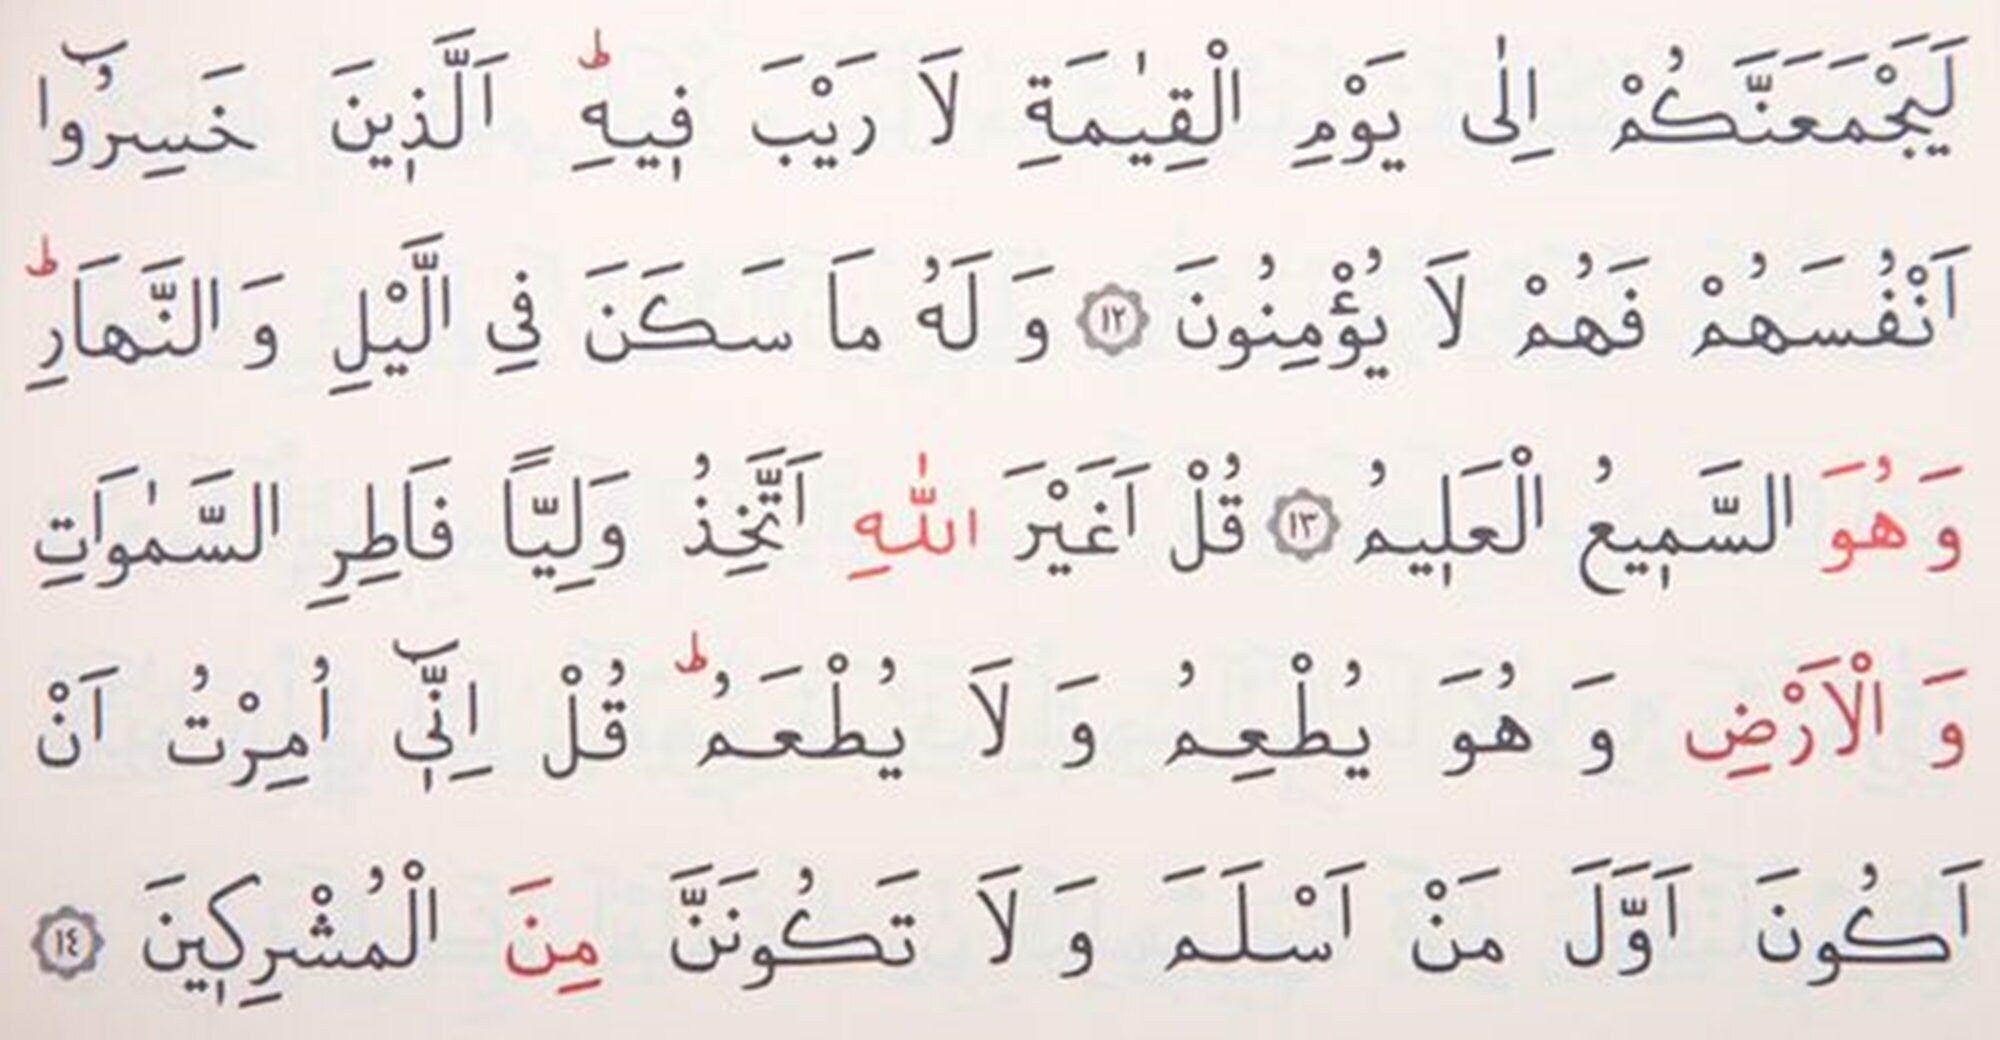 لَيَجْمَعَنَّكُمْ اِلٰى يَوْمِ الْقِيٰمَةِ لَا رَيْبَ فٖيهِؕ اَلَّذٖينَ خَسِرُٓوا
اَنْفُسَهُمْ فَهُمْ لَا يُؤْمِنُونَ ﴿١٢﴾ وَ لَهُ مَا سَكَنَ فِى الَّيْلِ وَ النَّهَارِؕ
وَ هُوَ السَّمٖيعُ الْعَلٖيمُ ﴿١٣﴾ قُلْ اَغَيْرَ اللّٰهِ اَتَّخِذُ وَلِيًّا فَاطِرِ السَّمٰوَاتِ
وَ الْاَرْضِ وَ هُوَ يُطْعِمُ وَ لَا يُطْعَمُؕ قُلْ اِنّٖٓى اُمِرْتُ اَنْ
اَكُونَ اَوَّلَ مَنْ اَسْلَمَ وَ لَا تَكُونَنَّ مِنَ الْمُشْرِكٖينَ ﴿١٤﴾